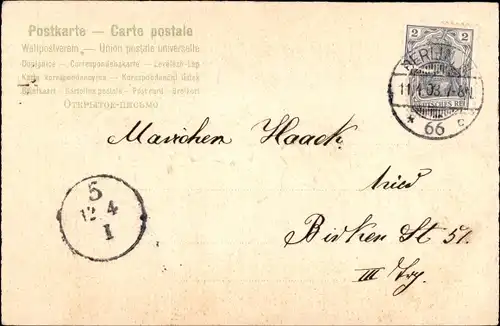 Postkarte — Carte postale
Weltpostverein — Union postale universelle
Dopisnice — Correspondenzkarte — Levelező-Lap
Karta korespondencyjna — Korespondenční lístek
Briefkaart — Cartolina postale — Post card — Brefkort
Открытое письмо
2
BERLIN
11.4.03.7-8N.
DEUTSCHES REICH
* 66 c
Haack.
hier
Birken St 51.
III Trp.
5
12 4
I